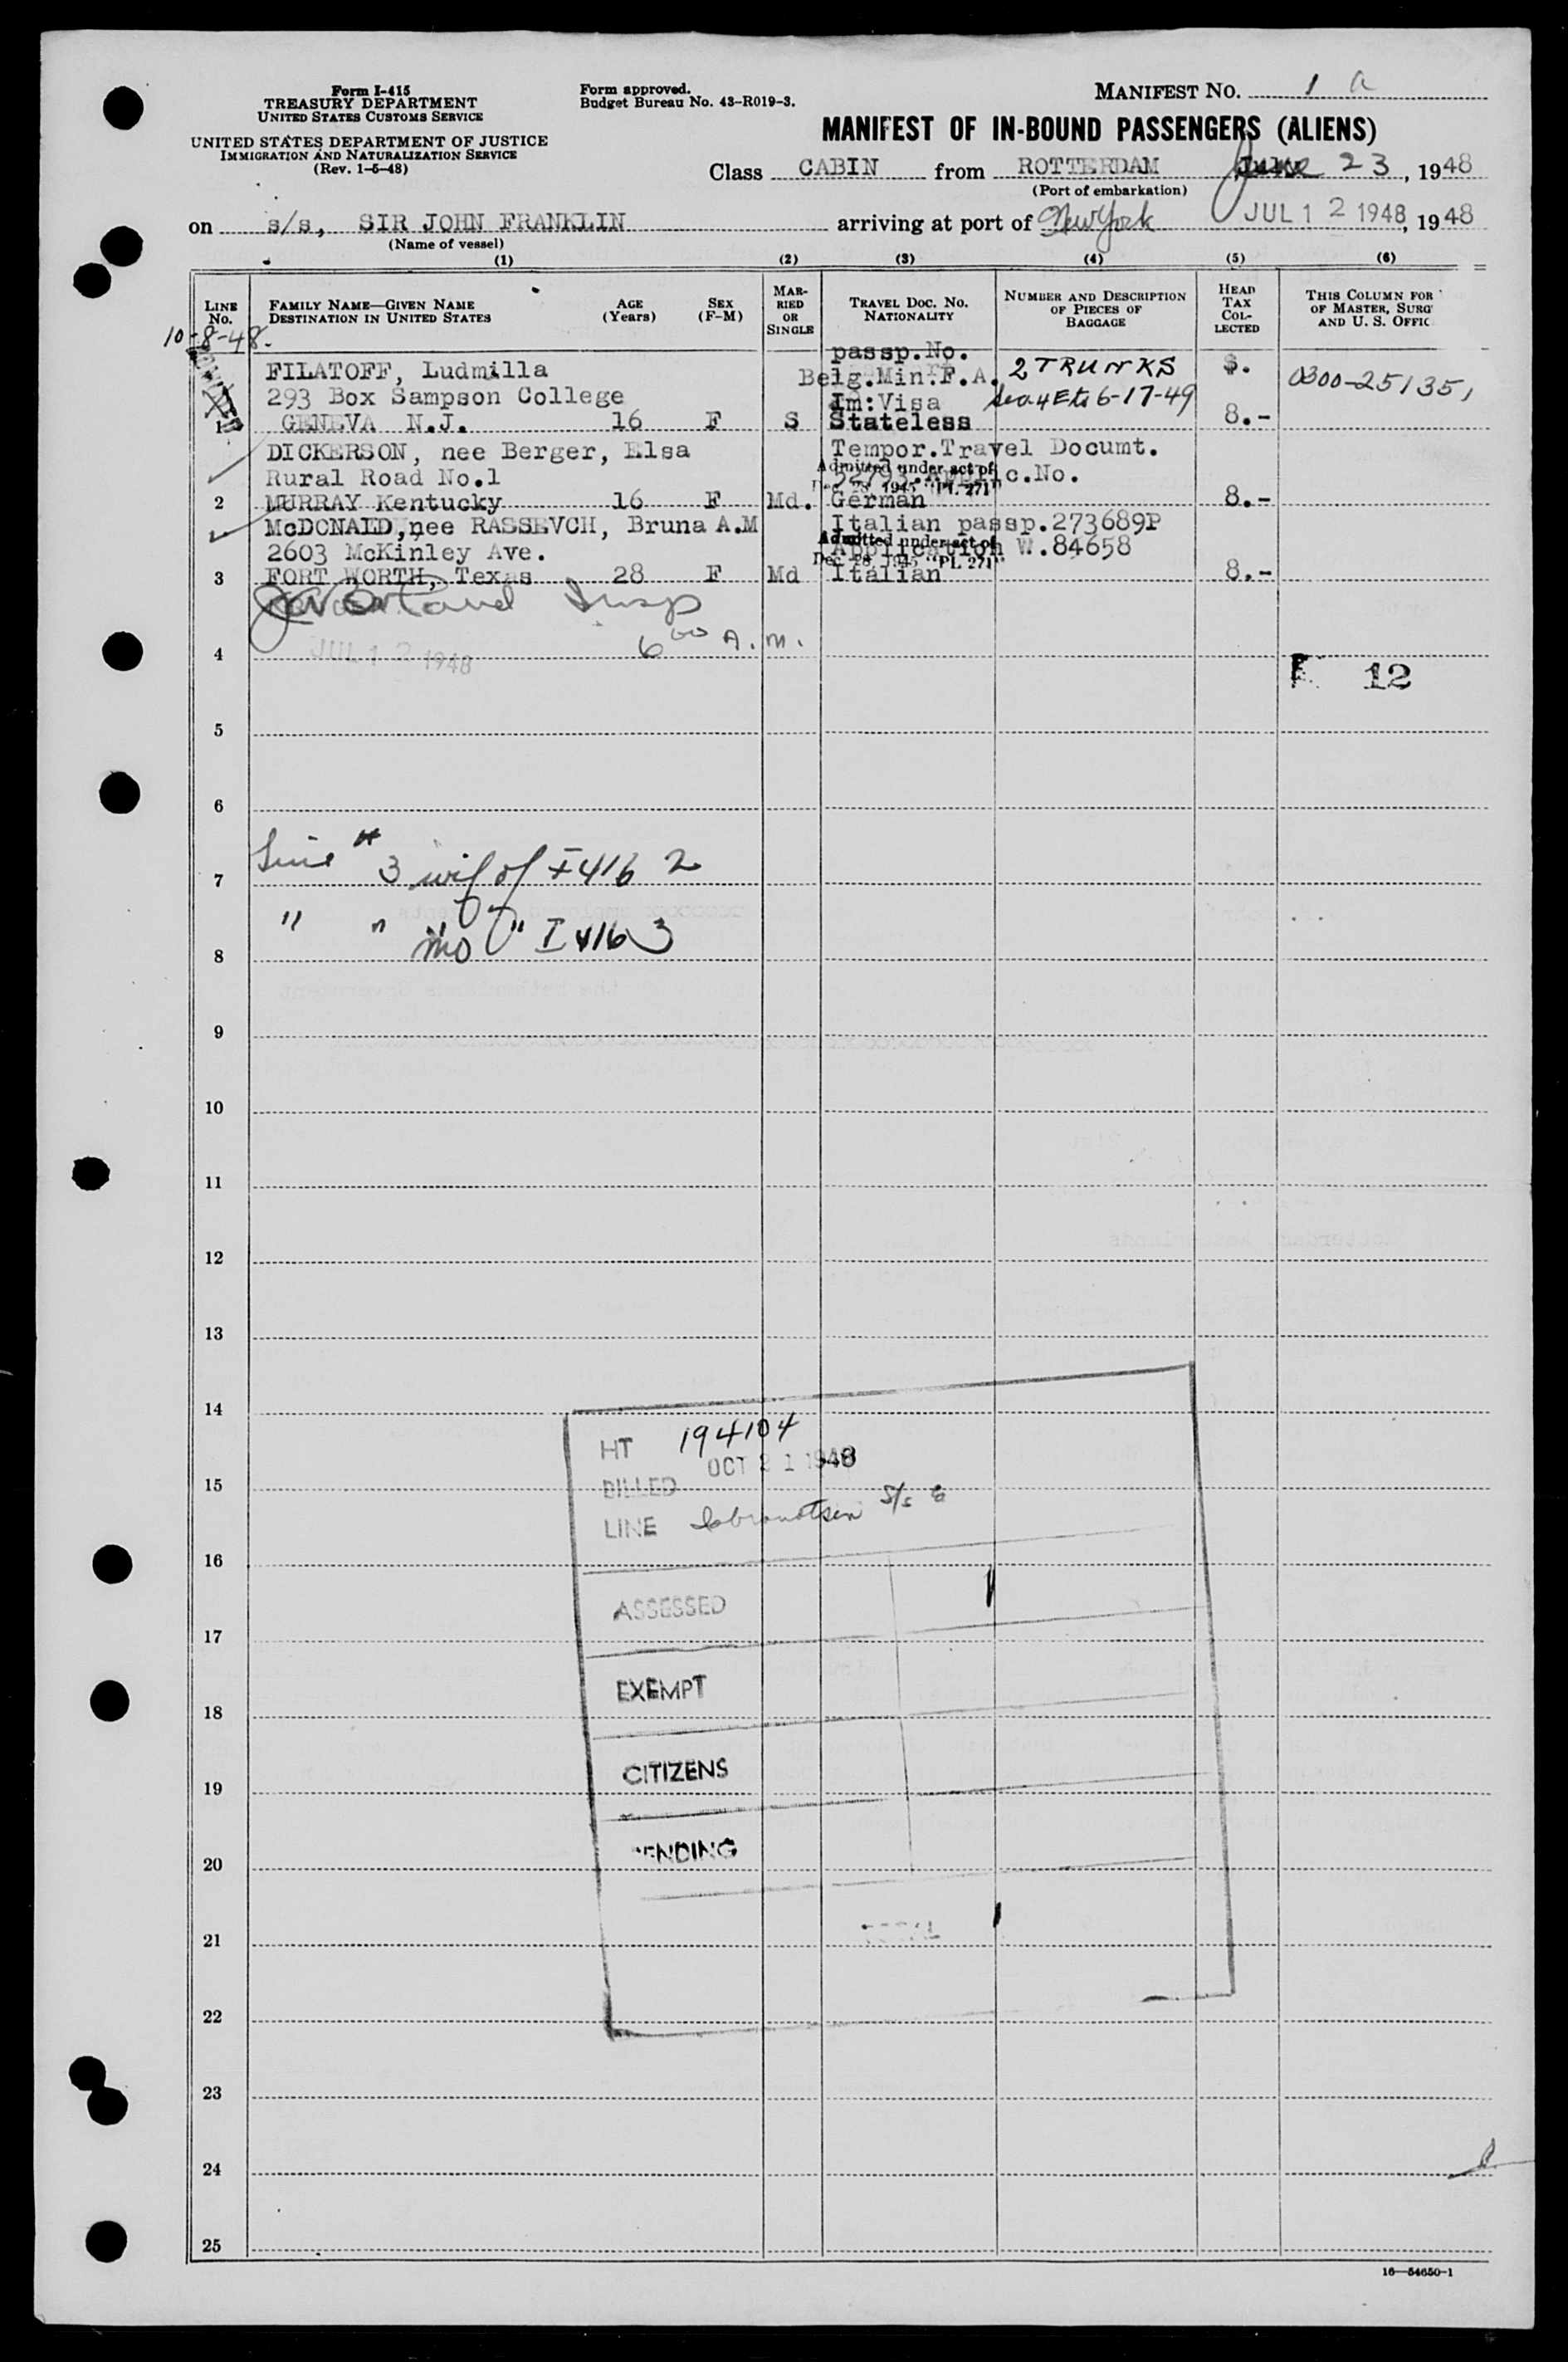 Form I-415
TREASURY DEPARTMENT
UNITED STATES CUSTOMS SERVICE
UNITED STATES DEPARTMENT OF JUSTICE
IMMIGRATION AND NATURALIZATION SERVICE
(Rev. 1-5-48)
Form approved.
Budget Bureau No. 43-R019-3.
MANIFEST NO. 1 a
MANIFEST OF IN-BOUND PASSENGERS (ALIENS)
Class CABIN from ROTTERDAM June 23, 1948
(Port of embarkation)
on s/s, SIR JOHN FRANKLIN arriving at port of New York JUL 12 1948, 1948
(Name of vessel)
(1) (2) (3) (4) (5) (6)
LINE NO.
FAMILY NAME—GIVEN NAME
DESTINATION IN UNITED STATES
AGE (Years)
SEX (F-M)
MARRIED OR SINGLE
TRAVEL DOC. NO.
NATIONALITY
NUMBER AND DESCRIPTION OF PIECES OF BAGGAGE
HEAD TAX COLLECTED
THIS COLUMN FOR
OF MASTER, SURG
AND U. S. OFFIC
10-8-48.
passp.No.
FILATOFF, Ludmilla Belg.Min.F.A. 2 TRUNKS $. 0300-251351
293 Box Sampson College Im:Visa 6-17-49
1 GENEVA N.J. 16 F S Stateless 8.-
DICKERSON, nee Berger, Elsa Tempor.Travel Documt.
Rural Road No.1 Admitted under act of c.No.
Dec 28 1945 "PL 271"
2 MURRAY Kentucky 16 F Md. German 8.-
McDONALD, nee RASSEVCH, Bruna A.M Italian passp.273689P
2603 McKinley Ave. Admitted under act of Application W.84658
Dec 28 1945 "PL 271"
3 FORT WORTH, Texas 28 F Md Italian 8.-
Insp
6 00 A.m.
4 JUL 12 1948
12
5
6
Line # 3 wif of I 416 2
7
" " mo " I 416 3
8
9
10
11
12
13
14
HT 194104
OCT 21 1948
15 BILLED
LINE Isbrandtsen S/s
16
ASSESSED
17
EXEMPT
18
CITIZENS
19
20
ENDING
TOTAL
21
22
23
24
25
16—54650-1